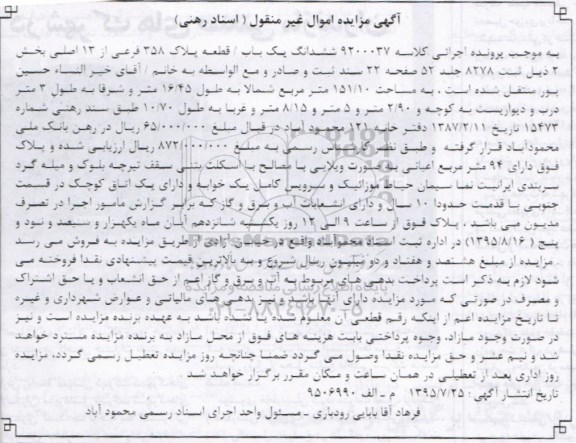 آگهی مزایده اموال غیر منقول (اسناد رهنی)
به موجب پرونده اجرائی کلاسه ۹۲۰۰۰۳۷ ششدانگ یک باب / قطعه پلاک ۳۵۸ فرعی از ۱۳ اصلی بخش
۲ ذیل ثبت ۸۲۷۸ جلد ۵۲ صفحه ۲۲ سند ثبت و صادر و مع الواسطه به خانم / آقای خیر النساء حسین
پور منتقل شده است . به مساحت ۱۵۱/۱۰ متر مربع شمالا به طول ۱۶/۴۵ متر و شرقا به طول ۳ متر
درب و دیواریست به کوچه و ۲/۹۰ متر و ۵ متر و ۸/۱۵ متر و غربا به طول ۱۰/۷۰ طبق سند رهنی شماره
۱۵۴۷۳ تاریخ ۱۳۸۷/۲/۱۱ دفتر خانه ۱۲۱ محمود آباد در قبال مبلغ ۶۵/۰۰۰/۰۰۰ ریال در رهن بانک ملی
محمودآباد قرار گرفته و طبق نظر کارشناس رسمی به مبلغ ۸۷۲/۰۰۰/۰۰۰ ریال ارزیابی شده و پلاک
فوق دارای ۹۴ متر مربع اعیانی به صورت ویلایی با مصالح با اسکلت بتنی سقف تیرچه بلوک و میله گرد
سربندی ایرانیت نما سیمان حیاط موزائیک و سرویس کامل یک خوابه و دارای یک اتاق کوچک در قسمت
جنوبی با قدمت حدودا ۱۰ سال و دارای انشعابات آب و برق و گاز که برابر گزارش مامور اجرا در تصرف
مدیون می باشد . پلاک فوق از ساعت ۹ الی ۱۲ روز یکشنبه شانزدهم آبان ماه یکهزار و سیصد و نود و
پنج (۱۳۹۵/۸/۱۶) در اداره ثبت اسناد محمودآباد واقع در خیابان آزادی از طریق مزایده به فروش می رسد
مزایده از مبلغ هشتصد و هفتاد و دو میلیون ریال شروع و به بالاترین قیمت پیشنهادی نقدا فروخته می
شود لازم به ذکر است پرداخت بدهی های مربوط به آب و برق و گاز اعم از حق انشعاب و یا حق اشتراک
و مصرف در صورتی که مورد مزایده دارای آنها باشد و نیز بدهی های مالیاتی و عوارض شهرداری و غیره
تا تاریخ مزایده اعم از اینکه رقم قطعی آن معلوم شده یا نشده باشد به عهده برنده مزایده است و نیز
در صورت وجود مازاد، وجوه پرداختی بابت هزینه های فوق از محل مازاد به برنده مزایده مسترد خواهد
شد و نیم عشر و حق مزایده نقدا وصول می گردد ضمنا چنانچه روز مزایده تعطیل رسمی گردد، مزایده
روز اداری بعد از تعطیلی در همان ساعت و مکان مقرر برگزار خواهد شد
تاریخ انتشار آگهی : ۱۳۹۵/۷/۲۵ م - الف ۹۵۰۶۹۹۰
فرهاد آقا بابایی رودباری - مسئولت واحد اجرای اسناد رسمی محمود آباد